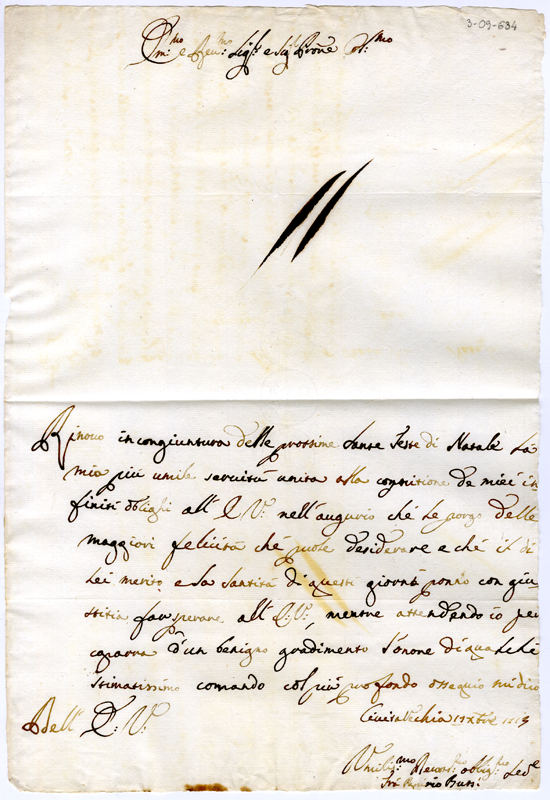 3-09-634
E.mo e Rev.mo Sig.r e Sig.r Prone
Rinovo in congiuntura delle prossime Sante Feste di Natale La
mia più umile servitù unita alla cognitione de miei in
finiti oblighi all' E V.ª nell'augurio ché Le porgo delle
maggiori felicità ché puole desiderare e ché il di
Lei merito, e La Santità di questi giorni ponno con giu
stitia far sperare all' E: V:, mentre attendendo io per
caparra d'un benigno gradimento l'onore di qualché
stimatissimo comando col più profondo ossequio mi dico
Dell' E: V:
Civita Vecchia Xbre
Umiliss.mo Devot.mo oblig.mo